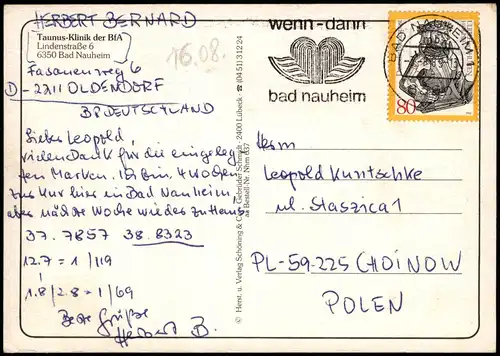 HERBERT BERNARD
Taunus-Klinik der BfA
Lindenstraße 6
6350 Bad Nauheim
16.08.
Fasanenweg 6
D-2211 OLDENDORF
BRDEUTSCHLAND
Lieber Leopold,
vielen Dank für die eingeleg
ten Marken. Ich bin 4 Wochen
zur Kur hier in Bad Nauheim
aber nächste Woche wieder zu Hause
37.7857 38.8323
12.7 = 1/119
1.8/2.8 = 1/69
Beste Grüße
Herbert B.
© Herst. u. Verlag Schöning & Co + Gebrüder Schmidt · 2400 Lübeck · ☎ (0451) 31224
Bestell-Nr. Nhm 637
wenn-dann
bad nauheim
BAD NAUHEIM 1
80
Herrn
Leopold Kuntschke
ul. Staszica 1
PL-59-225 CHOINOW
POLEN